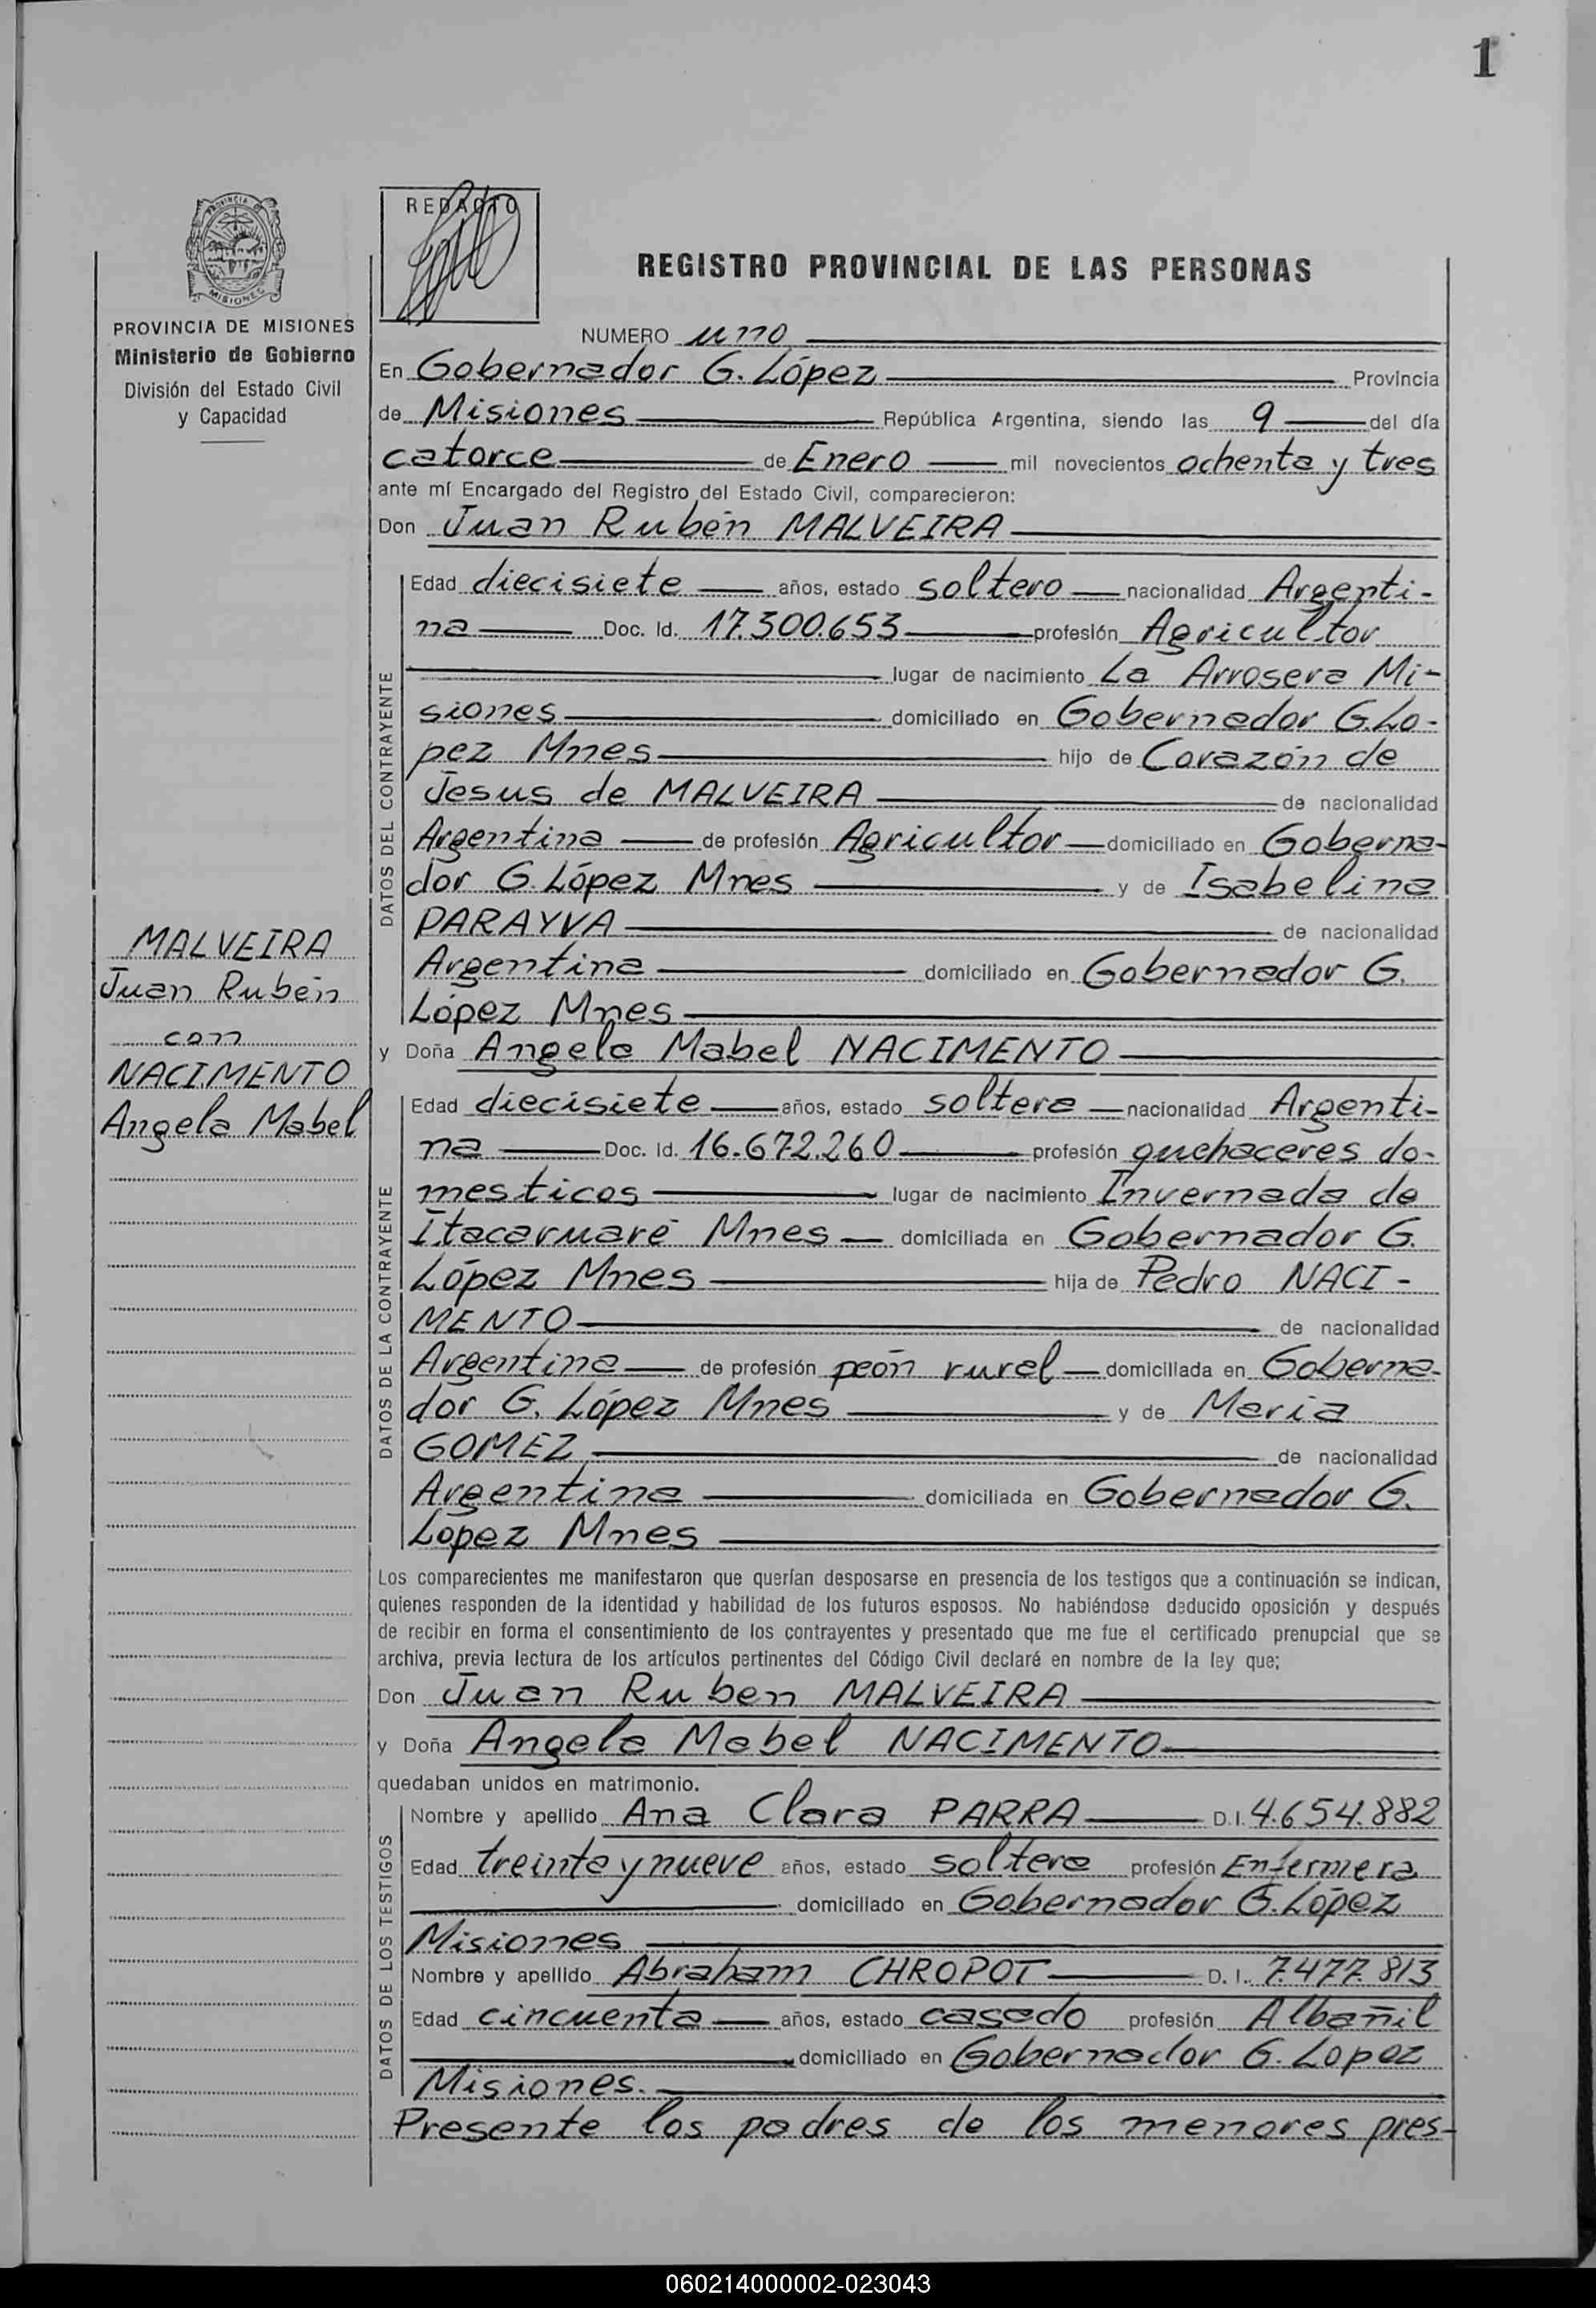 1
PROVINCIA DE MISIONES
Ministerio de Gobierno
División del Estado Civil
y Capacidad
MALVEIRA
Juan Rubén
con
NACIMENTO
Angela Mabel
REDACTO
REGISTRO PROVINCIAL DE LAS PERSONAS
NUMERO uno
En Gobernador G. López Provincia
de Misiones República Argentina, siendo las 9 del día
catorce de Enero mil novecientos ochenta y tres
ante mí Encargado del Registro del Estado Civil, comparecieron:
Don Juan Rubén MALVEIRA
DATOS DEL CONTRAYENTE
Edad diecisiete años, estado soltero nacionalidad Argenti-
na Doc. Id. 17.300.653 profesión Agricultor
lugar de nacimiento La Arrosera Mi-
siones domiciliado en Gobernador G. Lo-
pez Mnes hijo de Corazón de
Jesus de MALVEIRA de nacionalidad
Argentina de profesión Agricultor domiciliado en Goberna-
dor G. López Mnes y de Isabelina
PARAYVA de nacionalidad
Argentina domiciliado en Gobernador G.
López Mnes
y Doña Angela Mabel NACIMENTO
DATOS DE LA CONTRAYENTE
Edad diecisiete años, estado soltera nacionalidad Argenti-
na Doc. Id. 16.672.260 profesión quehaceres do-
mesticos lugar de nacimiento Invernada de
Itacaruaré Mnes domiciliada en Gobernador G.
López Mnes hija de Pedro NACI-
MENTO de nacionalidad
Argentina de profesión peón rural domiciliada en Goberna-
dor G. López Mnes y de Maria
GOMEZ de nacionalidad
Argentina domiciliada en Gobernador G.
López Mnes
Los comparecientes me manifestaron que querían desposarse en presencia de los testigos que a continuación se indican,
quienes responden de la identidad y habilidad de los futuros esposos. No habiéndose deducido oposición y después
de recibir en forma el consentimiento de los contrayentes y presentado que me fue el certificado prenupcial que se
archiva, previa lectura de los artículos pertinentes del Código Civil declaré en nombre de la ley que;
Don Juan Ruben MALVEIRA
y Doña Angela Mabel NACIMENTO
quedaban unidos en matrimonio.
DATOS DE LOS TESTIGOS
Nombre y apellido Ana Clara PARRA D.I. 4.654.882
Edad treinta y nueve años, estado soltera profesión Enfermera
domiciliado en Gobernador G. López
Misiones
Nombre y apellido Abraham CHROPOT D. I. 7.477.813
Edad cincuenta años, estado casado profesión Albañil
domiciliado en Gobernador G. Lopez
Misiones.
Presente los padres de los menores pres-
060214000002-023043